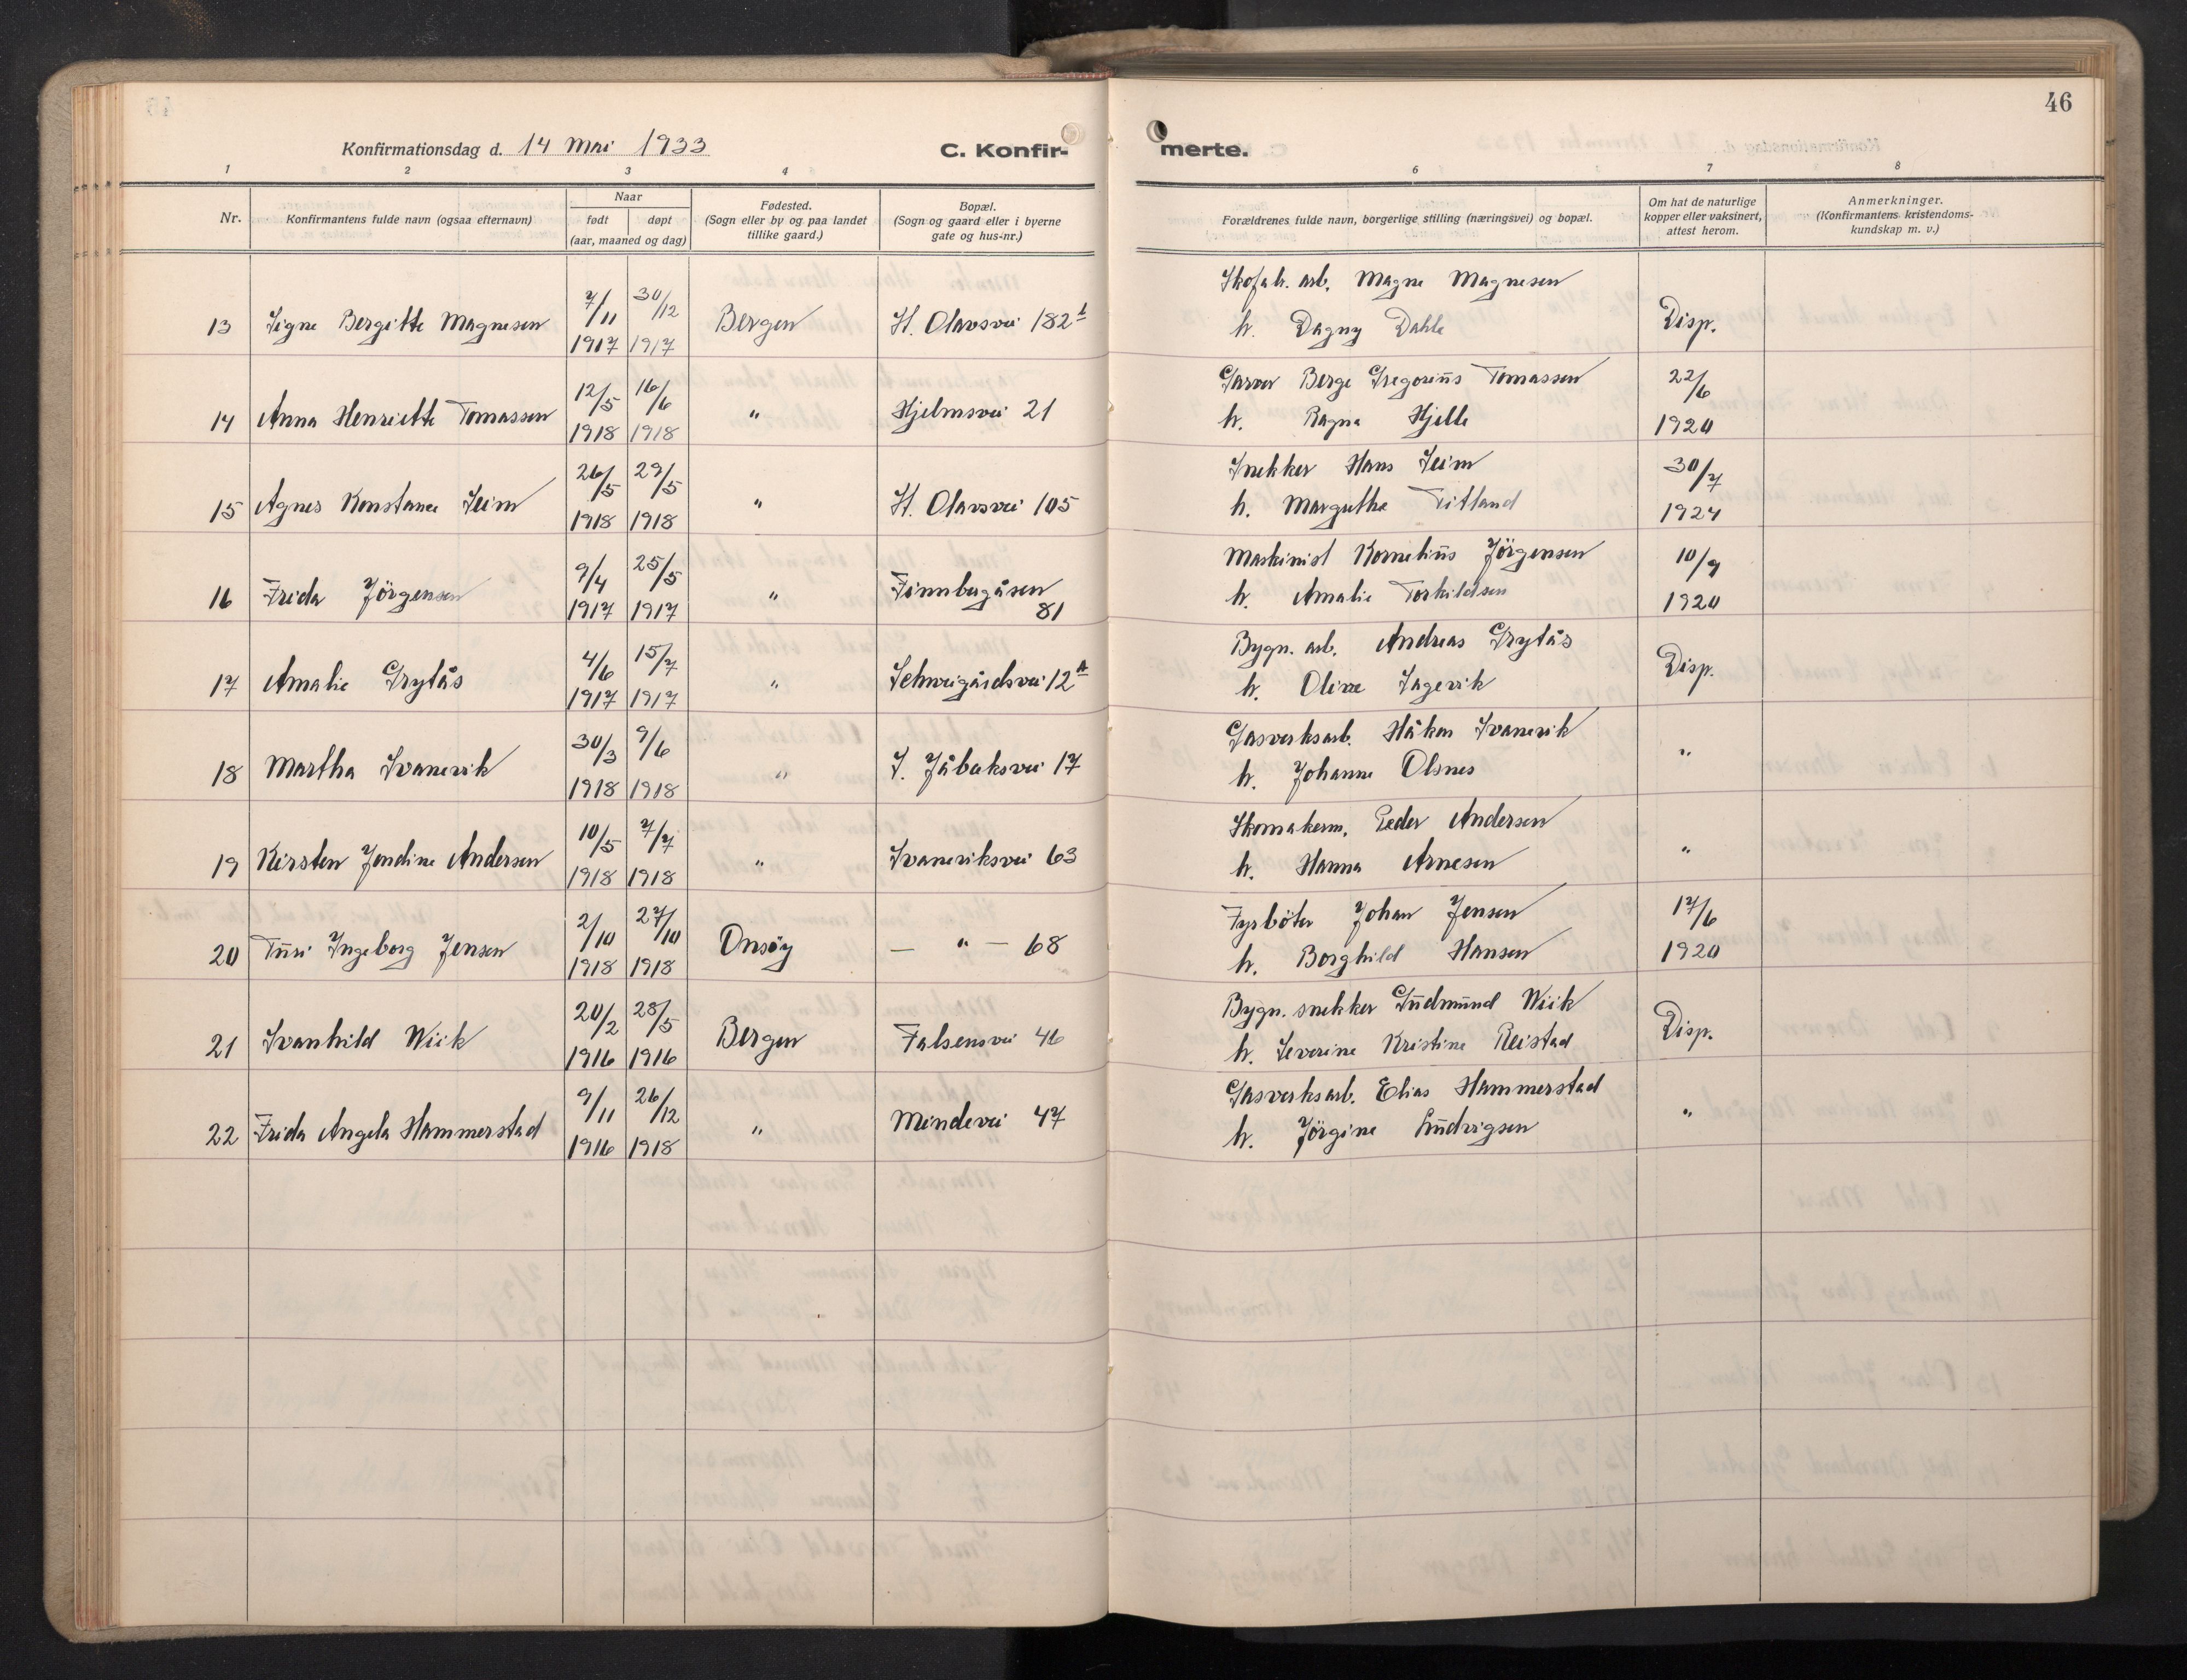 46
Konfirmationsdag d. 14 Mai 1933
C. Konfir-
merte.
1 2 3 4 6 7 8
Nr.
Konfirmantens fulde navn (ogsaa efternavn)
Naar
født døpt
(aar, maaned og dag)
Fødested.
(Sogn eller by og paa landet
tillike gaard.)
Bopæl.
(Sogn og gaard eller i byerne
gate og hus-nr.)
Forældrenes fulde navn, borgerlige stilling (næringsvei) og bopæl.
Om hat de naturlige
kopper eller vaksinert,
attest herom.
Anmerkninger.
(Konfirmantens kristendoms-
kundskap m. v.)
7/11 30/12 Skofab. arb. Magne Magnesen
13 Signe Bergitte Magnesen Bergen St. Olavsvei 182 Disp.
1917 1917 h. Dagny Dahle
12/5 16/6 Garver Berge Gregorius Tomassen 22/6
14 Anna Henriette Tomassen " Hjelmsvei 21
1918 1918 h. Ragna Hjelle 1920
26/5 29/5 Snekker Hans Seim 30/7
15 Agnes Konstance Seim " St. Olavsvei 105
1918 1918 h. Margrethe Titland 1924
9/4 25/5 Maskinist Kornelius Jörgensen 10/9
16 Frida Jörgensen " Finnbergåsen
1917 1917 81 h. Amalie Torkildsen 1920
4/6 15/7 Bygn. arb. Andreas Grytås
17 Amalie Grytås " Schweigårdsvei 12 A Disp.
1917 1917 h. Oline Sagevik
30/3 9/6 Gasverksarb. Håkon Svanevik
18 Martha Svanevik " J. Jåbæksvei 17 "
1918 1918 h. Johanne Olsnes
10/5 7/7 Skomakerm. Peder Andersen
19 Kirsten Jendine Andersen " Svaneviksvei 63 "
1918 1918 h. Hanna Arnesen
2/10 27/10 Fyrböter Johan Jensen 17/6
20 Turi Ingeborg Jensen Onsöy — " — 68
1918 1918 h. Borghild Hansen 1920
20/2 28/5 Bygn. snekker Gudmund Wiik
21 Svanhild Wiik Bergen Falsensvei 46 Disp.
1916 1916 h. Severine Kristine Reistad
9/11 26/12 Gasverksarb. Elias Hammerstad
22 Frida Angela Hammerstad " Mindevei 47 "
1916 1918 h. Jörgine Ludvigsen